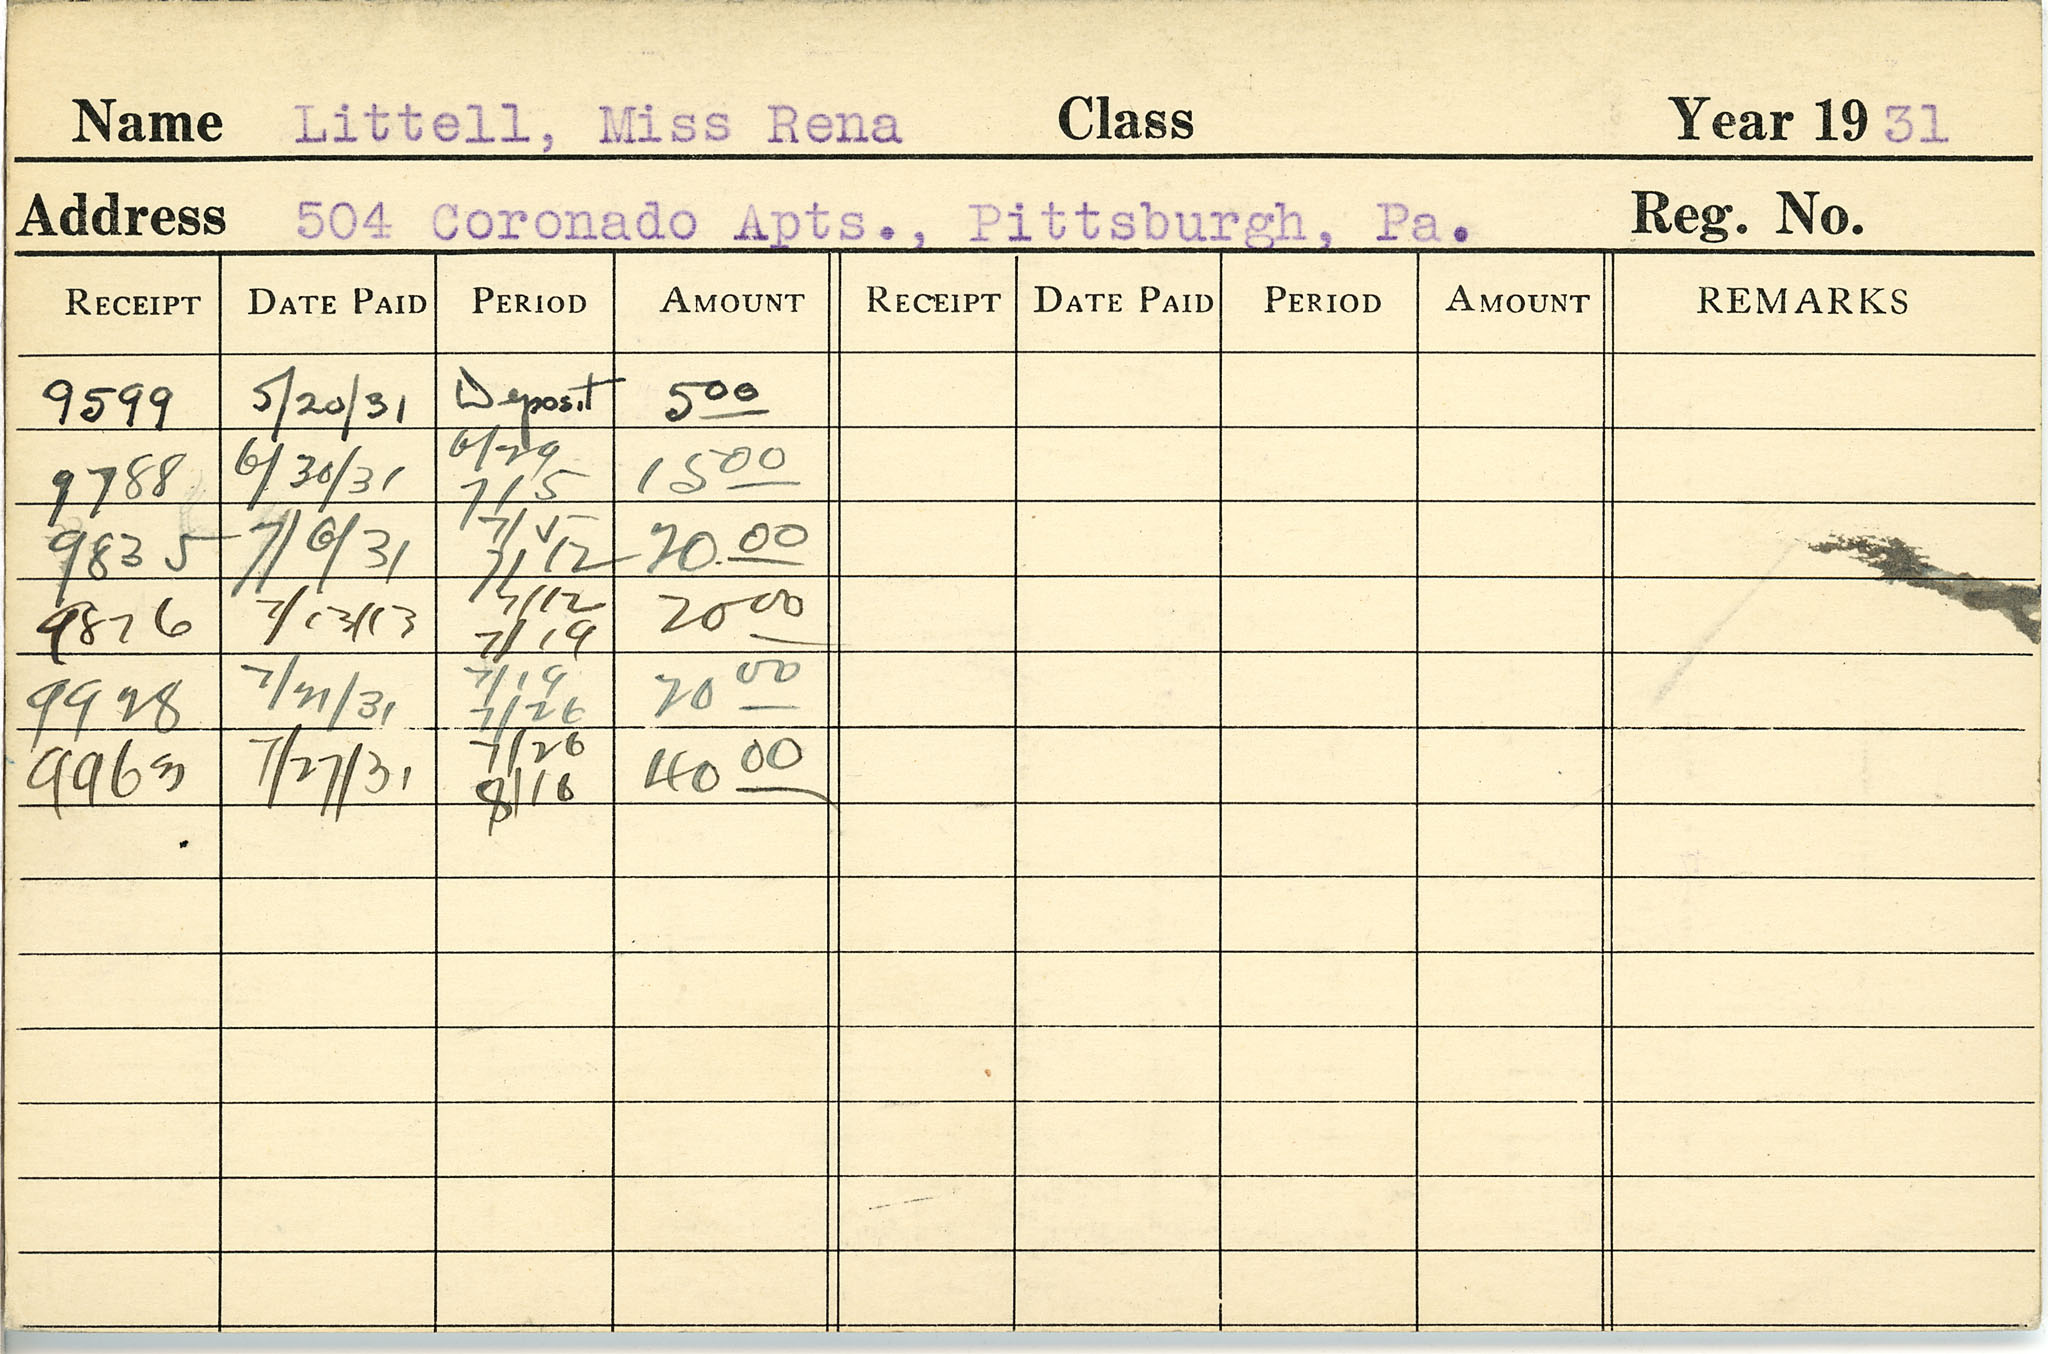 Name Littell, Miss Rena Class Year 19 31
Address 504 Coronado Apts., Pittsburgh, Pa. Reg. No.
RECEIPT DATE PAID PERIOD AMOUNT RECEIPT DATE PAID PERIOD AMOUNT REMARKS
9599 5/20/31 Deposit 5 00
9788 6/30/31 6/29 7/5 15 00
9835 7/6/31 7/5 7/12 20.00
9876 7/13/13 7/12 7/19 20 00
9928 7/21/31 7/19 7/26 20 00
7/27/31 7/26 8/16 40 00